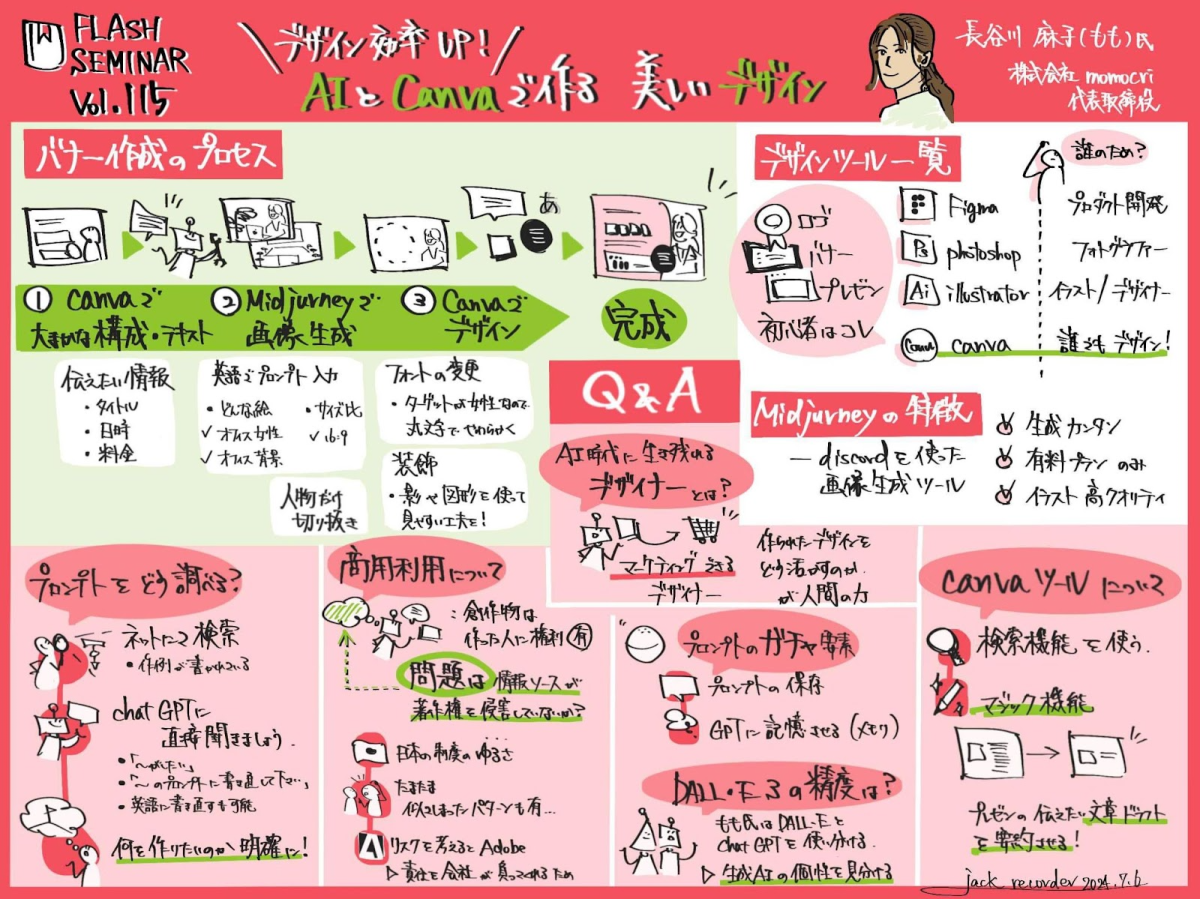 FLASH
SEMINAR
Vol.115
デザイン効率UP!
AIとCanvaで作る 美しいデザイン
長谷川 麻子(もも)氏
株式会社momocri
代表取締役
バナー作成のプロセス
あ
① canvaで
大まかな構成・テキスト
② Midjurneyで
画像生成
③ Canvaで
デザイン
完成
伝えたい情報
・タイトル
・日時
・料金
英語でプロンプト入力
・どんな絵
✓ オフィス女性
✓ オフィス背景
・サイズ比
✓ 16:9
人物だけ
切り抜き
フォントの変更
・ターゲットが女性なので
丸文字でやわらかく
装飾
・影や図形を使って
見やすい工夫を!
デザインツール一覧
誰のため?
ロゴ
バナー
プレゼン
初心者はコレ
Figma
プロダクト開発
Ps photoshop
フォトグラフィー
Ai illustrator
イラスト/デザイナー
Canva canva
誰でもデザイン!
Midjurneyの特徴
— discordを使った
画像生成ツール
✓ 生成カンタン
✓ 有料プランのみ
✓ イラスト高クオリティ
Q&A
AI時代に生き残れる
デザイナーとは?
マーケティングできる
デザイナー
作られたデザインを
どう活かすのか
が人間の力
プロンプトをどう調べる?
ネットにて検索
・作例が書かれている
chatGPTに
直接聞きましょう.
・「〜がしたい」
・「〜のプロンプトに書き直して下さい」
・英語に書き直すも可能
何を作りたいのか明確に!
商用利用について
:創作物は
作った人に権利有
問題は情報ソースが
著作権を侵害していないか?
日本の制度のゆるさ
たまたま
似てしまったパターンも有…
リスクを考えるとAdobe
▷ 責任を会社が負ってくれるため
プロンプトのガチャ要素
プロンプトの保存
GPTに記憶させる(メモリ)
DALL・E3の精度は?
もも氏はDALL・Eと
chatGPTを使い分ける.
▷ 生成AIの個性を見分ける
canvaツールについて
検索機能を使う.
マジック機能
プレゼンの伝えたい文章ドラフト
を要約させる!
jack recorder 2024.7.6